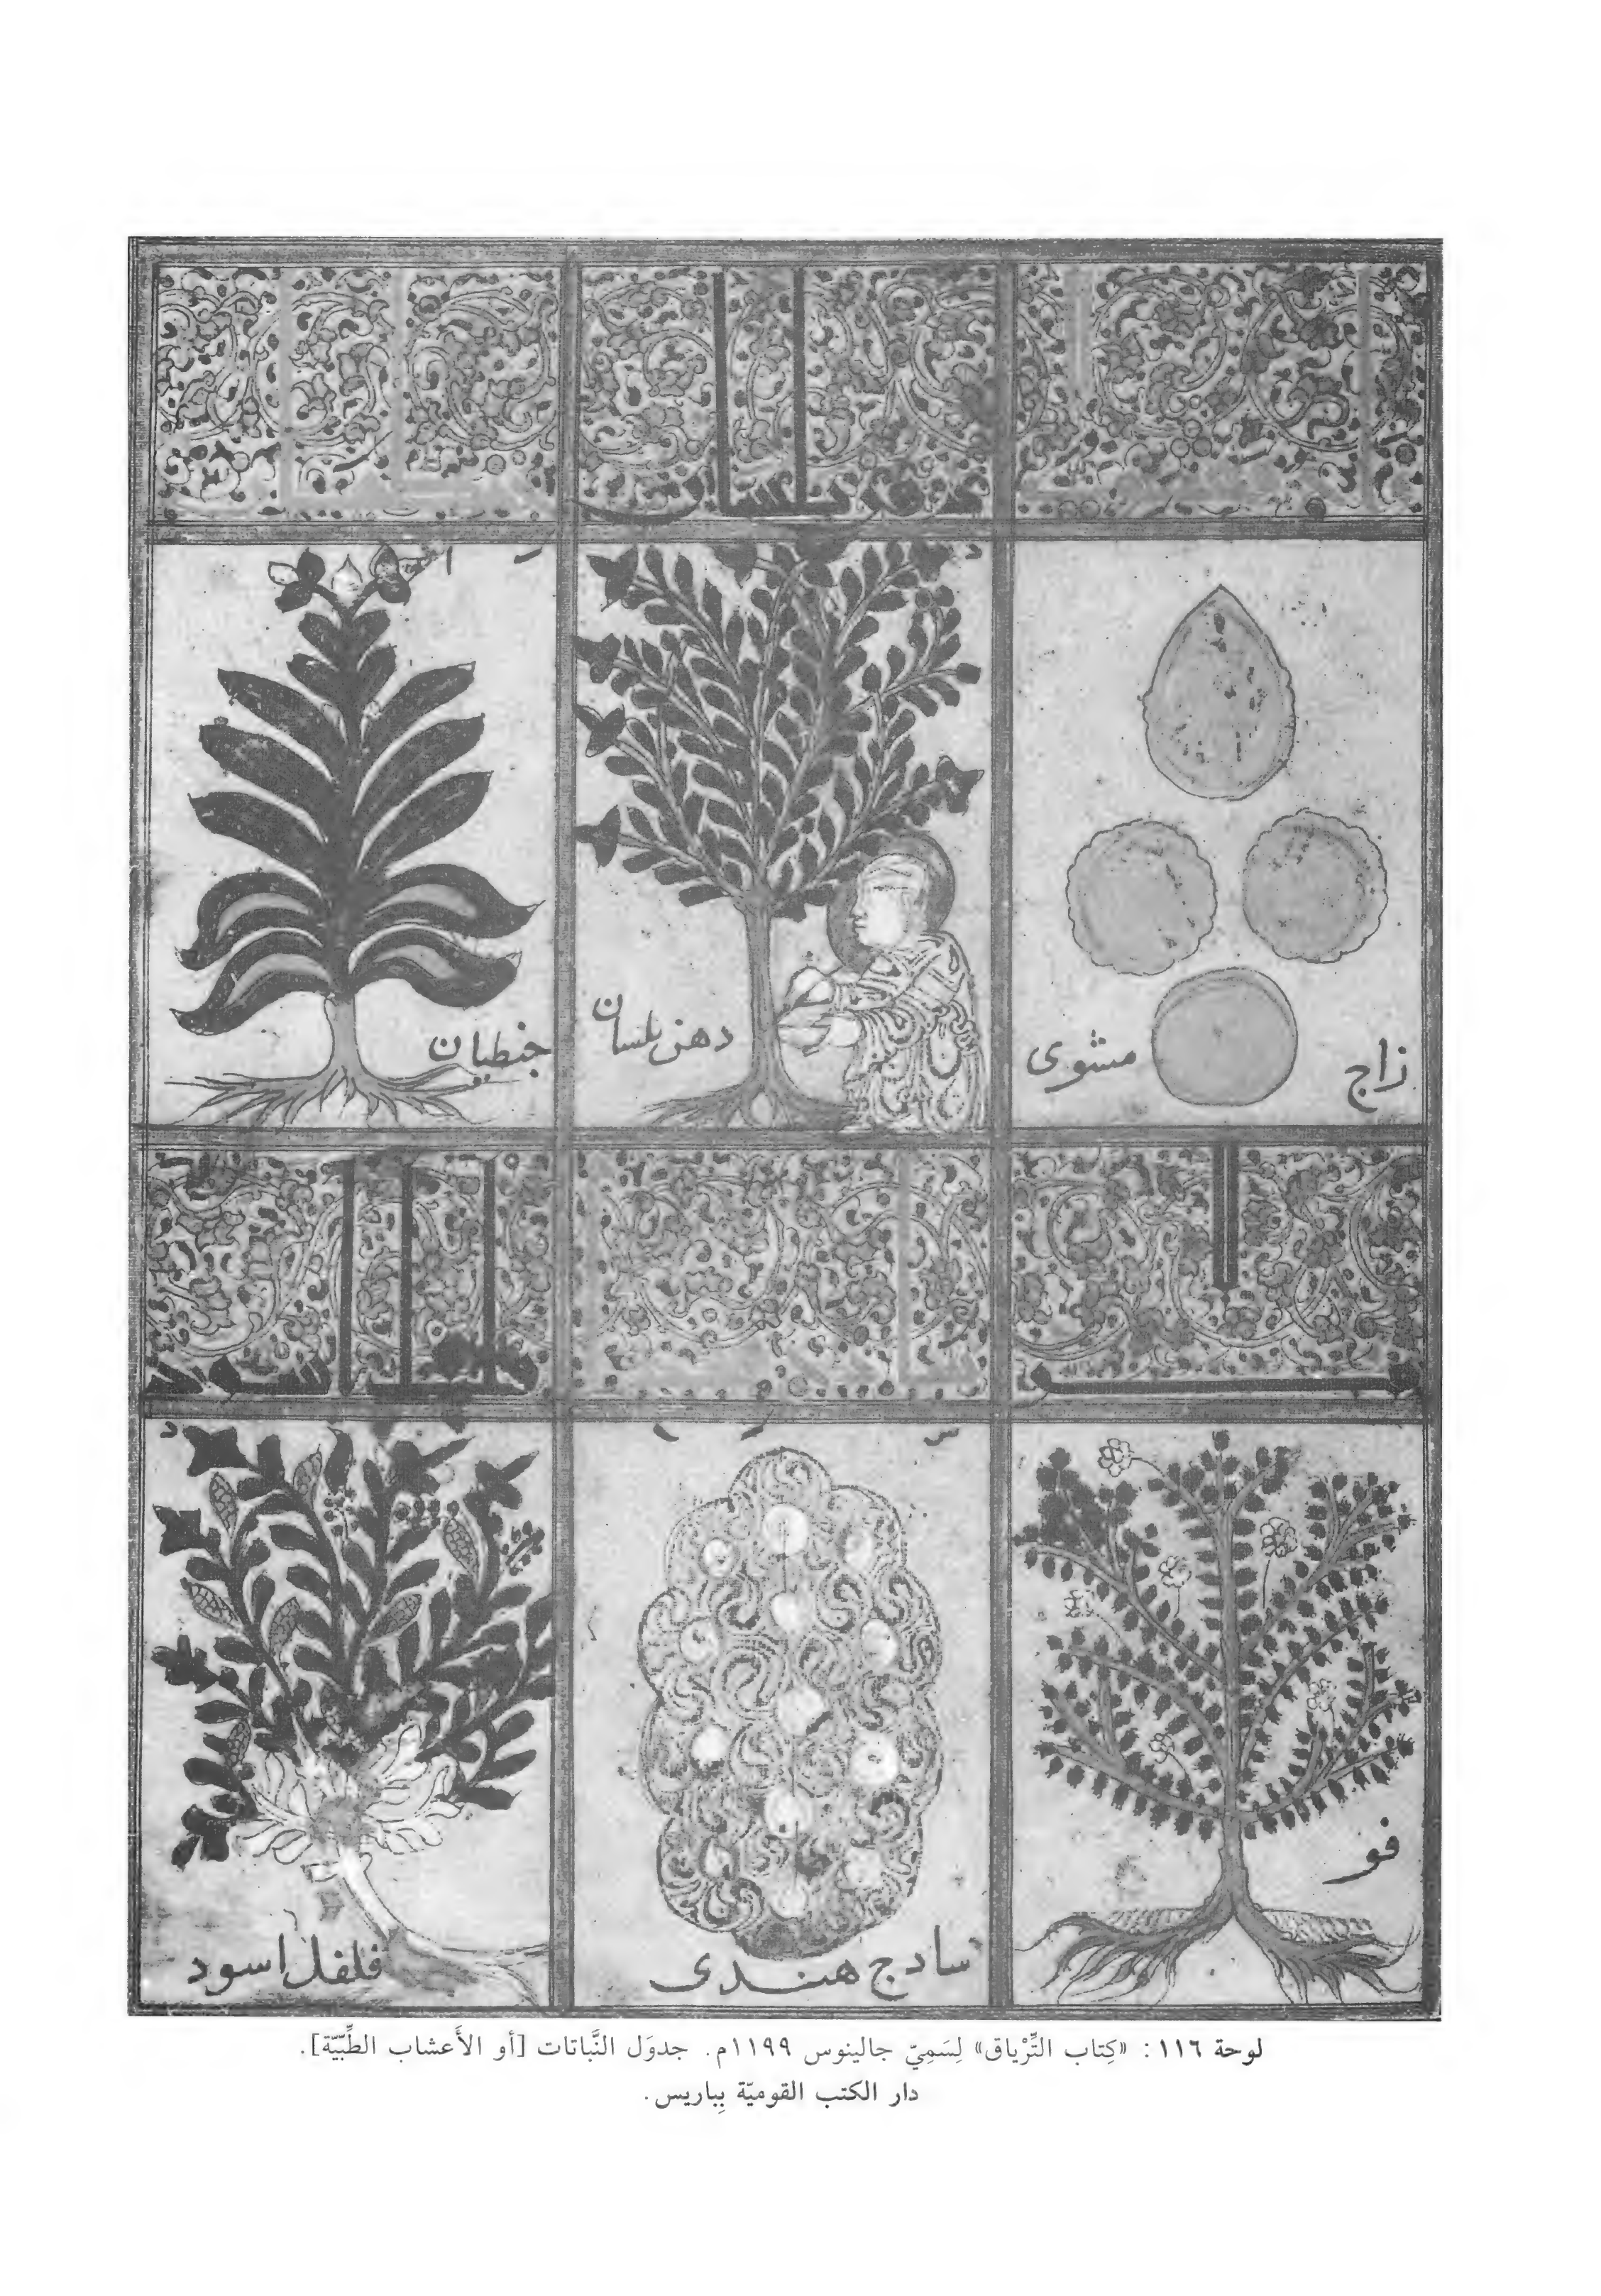 زاج
مشوى
دهن بلسان
جنطيان
فو
سادج هندى
فلفل اسود
لوحة ١١٦ : «كِتاب التِّرْياق» لِسَمِيّ جالينوس ١١٩٩م. جدوَل النَّباتات [أو الأَعشاب الطِّبّيّة].
دار الكتب القوميّة بِباريس.